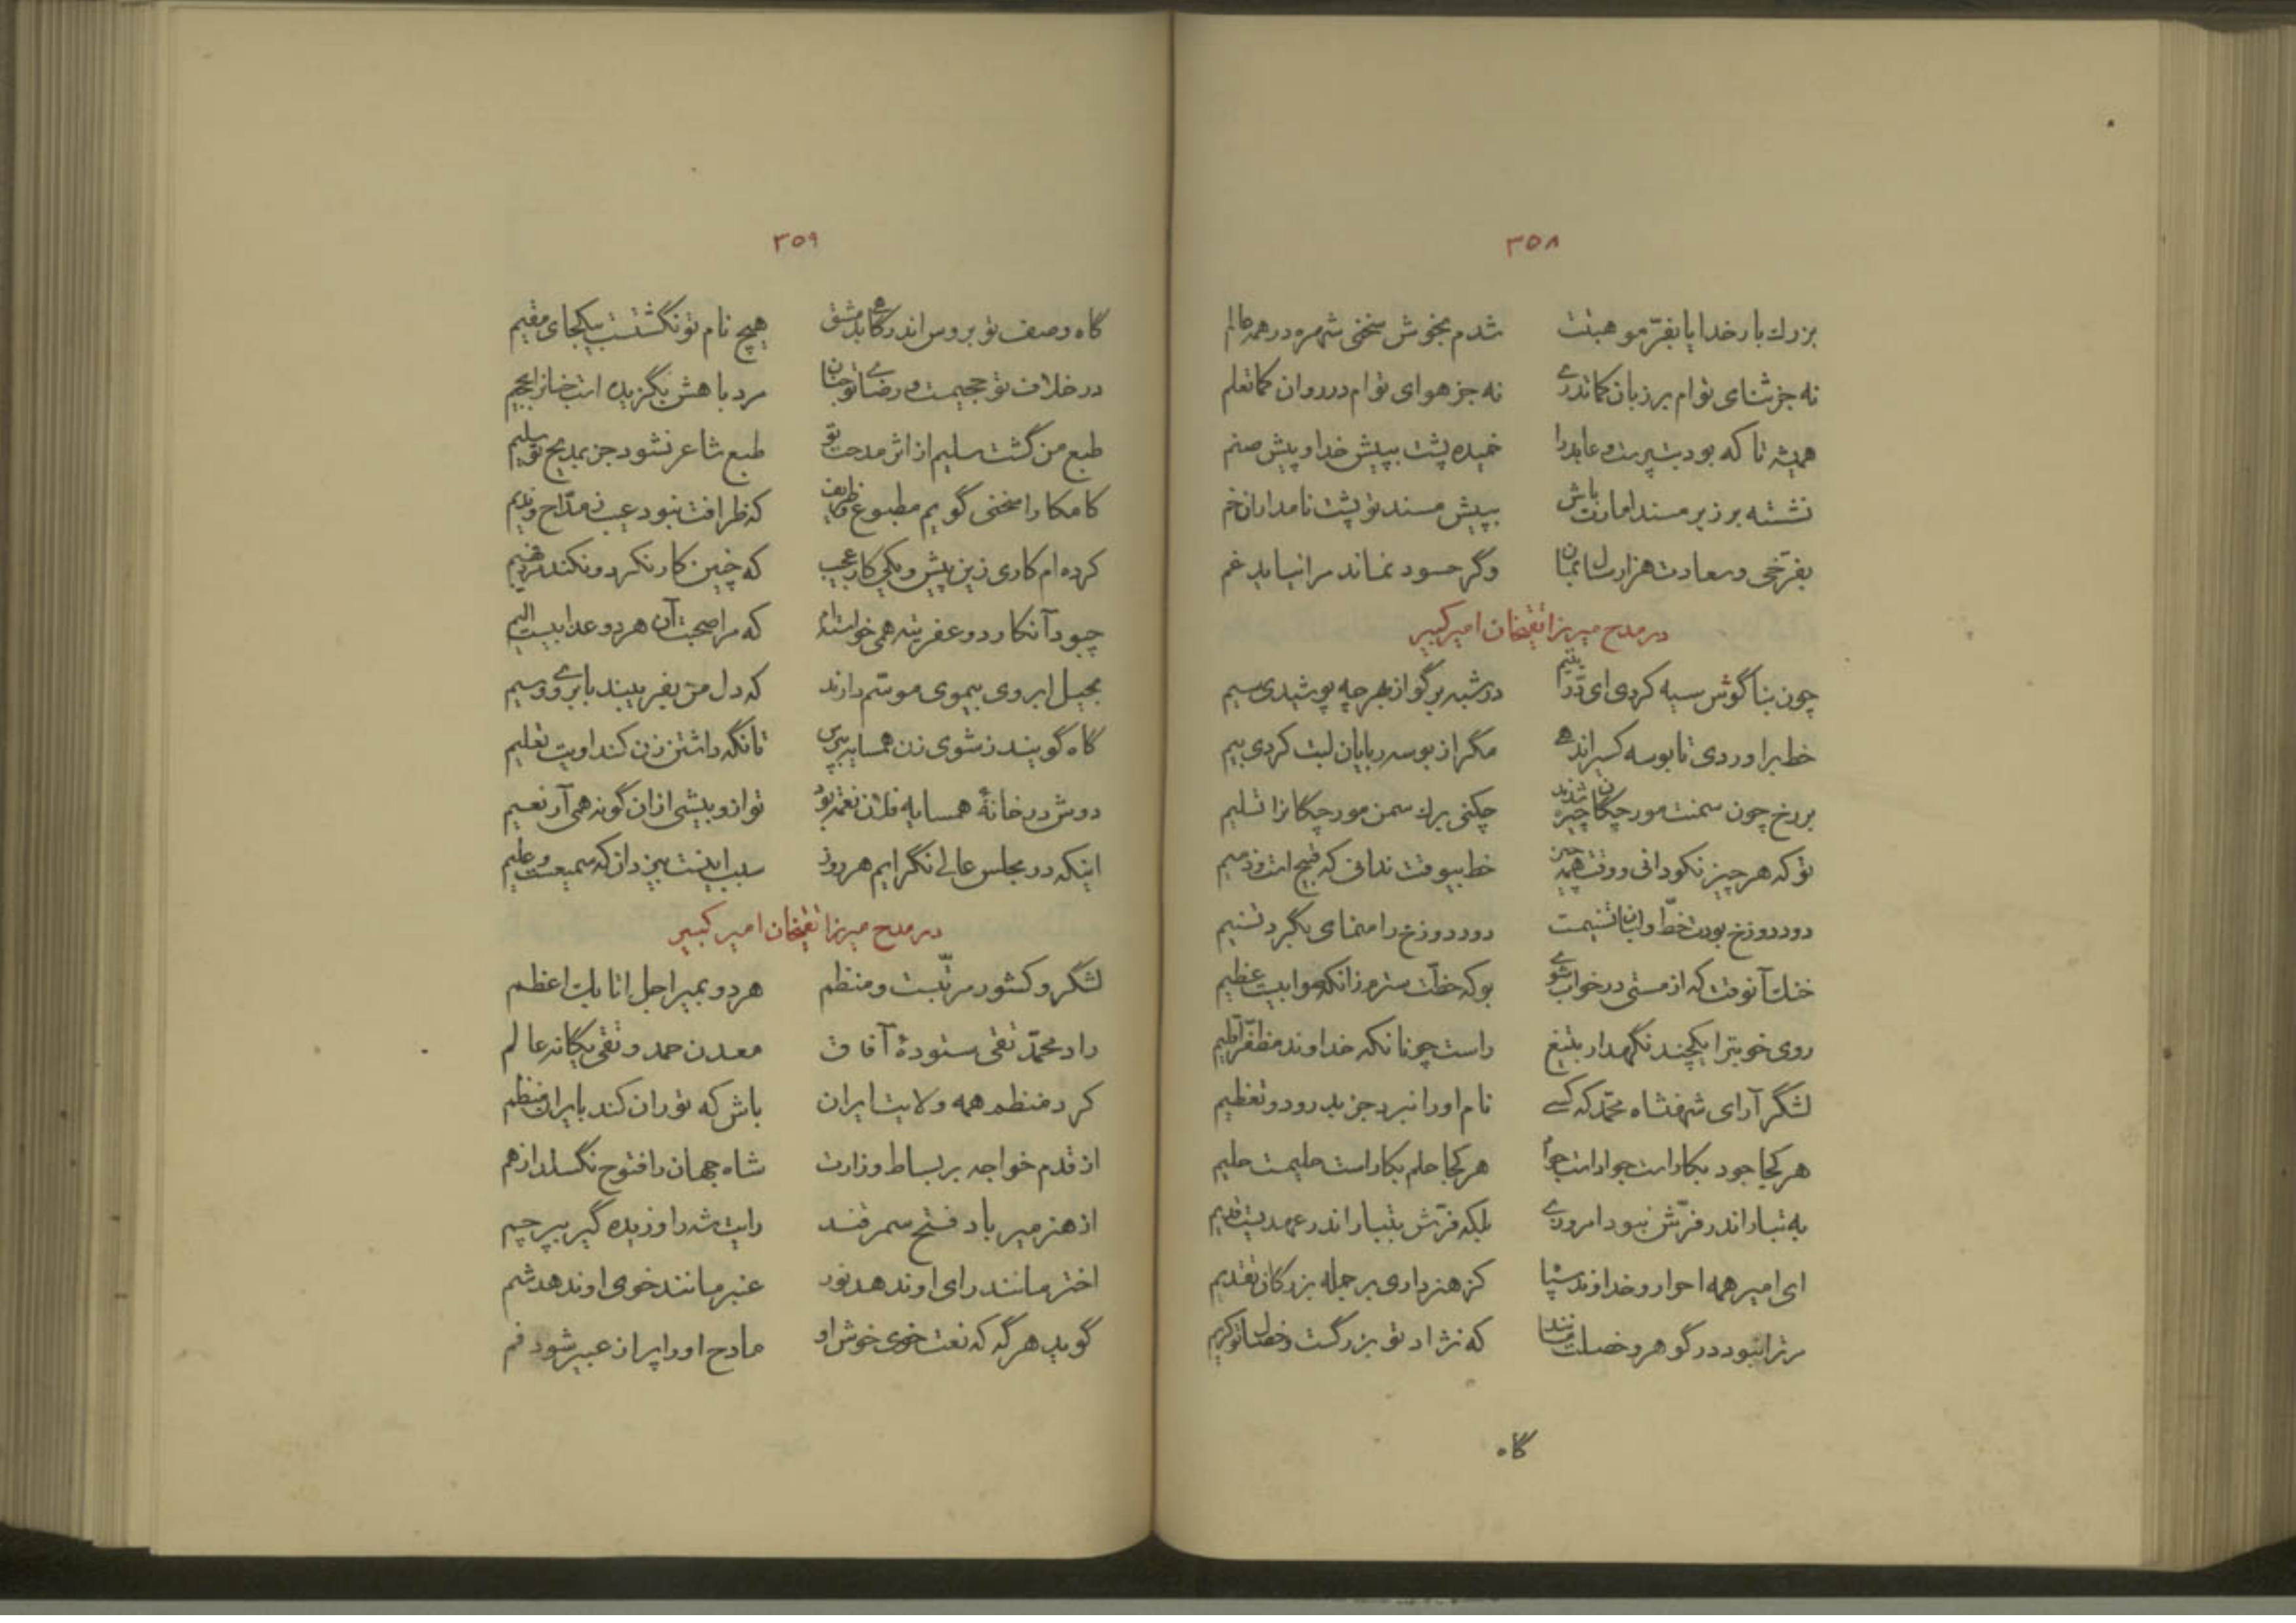 ۳۵۸
بزرك بار خدایا بفرّ مو هبتت شدم بخوش سخنی شهره در همه عالم
نه جز ثنای توام بر زبان کماند رے نه جز هوای توام در روان کماتعلم
همیشه تا که بود بت پرست و عابد را خمیده پشت بپیش خدا و پیش صنم
نشسته بر زبر مسند امارت باش بپیش مسند تو پشت نامداران خم
بفرّخی و سعادت هزار سال بمان وگر حسود نماند مرا نیاید غم
در مدح میرزا تقیخان امیر کبیر
چون بناگوش سیه کردی ای درّ یتیم در شبه بر گو از بهر چه پوشیدی سیم
خط براوردی تا بوسه کسیرا ندهے مگر از بوسه ربایان لبت کردی بیم
بر رخ چون سمنت مورچکان چیره شدند چکنی برك سمن مورچکانرا تسلیم
تو که هر چیز نکو دانی و وقت همه چیز خط بیوقت ندانی که قبیح است و ذمیم
دود دوزخ بودت خطّ و لبان تسنیمت دود دوزخ را منمای بگرد تسنیم
خنك آنوقت که از مستی در خواب شوے بو که خطّت سترم زانکه ثوابیست عظیم
روی خوبترا یکچند نگهدار بتیغ راست چونانکه خداوند مظفّر اقلیم
لشگر آرای شهنشاه محمّد که کسے نام او را نبرد جز بدرود و تعظیم
هر کجا جود بکار است جواد است جواد هر کجا حلم بکار است حلیمست حلیم
به تبار اندر فرّش نبود امروزے بلکه فرّش بتبار اندر عهدیست قدیم
ای امیر همه احرار و خداوند سپاه کز هنر داری بر جمله بزرگان تقدیم
مر ترا نبود در گوهر و خصلت مانند که نژاد تو بزرگست و خصال تو کریم
گاه
۳۵۹
گاه وصف تو بروس اندر گاهے بدمشق هیچ نام تو نگشتست بیکجای مقیم
در خلاف تو جحیمست و رضای تو جنان مرد با هش نگزیده است جنانرا بجحیم
طبع من گشت سلیم از اثر مدحت تو طبع شاعر نشود جز بمدیح تو سلیم
کامکارا سخنی گویم مطبوع و ظریف که ظرافت نبود عیب ز مدّاح و ندیم
کرده ام کاری زین پیش و یکی کار عجیب که چنین کار نکرد و نکند مرد فهیم
چبود آنکار دو عفریته همی خواسته ام که مرا صحبت آن هر دو عذابیست الیم
بحیل ابروی بیموی موسّم دارند که دل من بفریبند بابروے وسیم
گاه گویند ز شوی زن همسایه بپرس تا نگه داشتن زن کند اویت تعلیم
دوش در خانهٔ همسایه فلان نعمت بود تو از و بیشی ازان گونه همی آر نعیم
اینکه در مجلس عالی نگرایم هر روز سبب اینست بیزدان که سمیعست و علیم
در مدح میرزا تقیخان امیر کبیر
لشگر و کشور مرتّبست و منظم هر دو بمیر اجل اتابك اعظم
راد محمّد تقی ستودهٔ آفاق معدن حمد و تقی یگانه عالم
کرد منظم همه ولایت ایران باش که توران کند بایران منظم
از قدم خواجه بر بساط وزارت شاه جهان را فتوح نگسلد از هم
از هنر میر باد فتح سمرقند رایت شه را وزیده گیر بپرچم
اختر مانند رای او ندهد نور عنبر مانند خوی او ندهد شم
گوید هر گه که نعت خوی خوش او مادح او را پر از عبیر شود فم